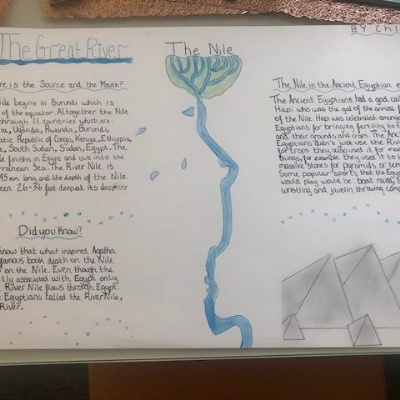 The Great River
The Nile
BY Chl
ere is the Source and the Mouth?
ile begins in Burundi which is
of the equator. Altogether the Nile
through 11 countries which are:
ia, Uganda, Rwanda, Burundi,
atic Republic of Congo, Kenya, Ethiopia,
a, South Sudan, Sudan, Egypt. The
ile finishes in Egypt and out into the
rranean Sea. The River Nile is
95 km long and the depth of the Nile
een 26-36 feet deepest its
Did you Know?
now that what inspired Agatha
famous book death on the Nile
on the Nile. Even though the
tly associated with Egypt only
River Nile flows through Egypt
Egyptians called the River Nile,
River.
The Nile in the Ancient Egyptian e
The Ancient Egyptians had a god call
Hapi who was the god of the annual f
of the Nile. Hapi was celebrated amongst
Egyptians for bringing fertility to t
and their grounds and crops. The Ancient
Egyptians didn't just use the River
for crops they also used it for many
things, for example, they used it to
massive stones for pyramids or tem
Some popular sports that the Egypt
would play would be boat races, S
wrestling and javelin throwing comp